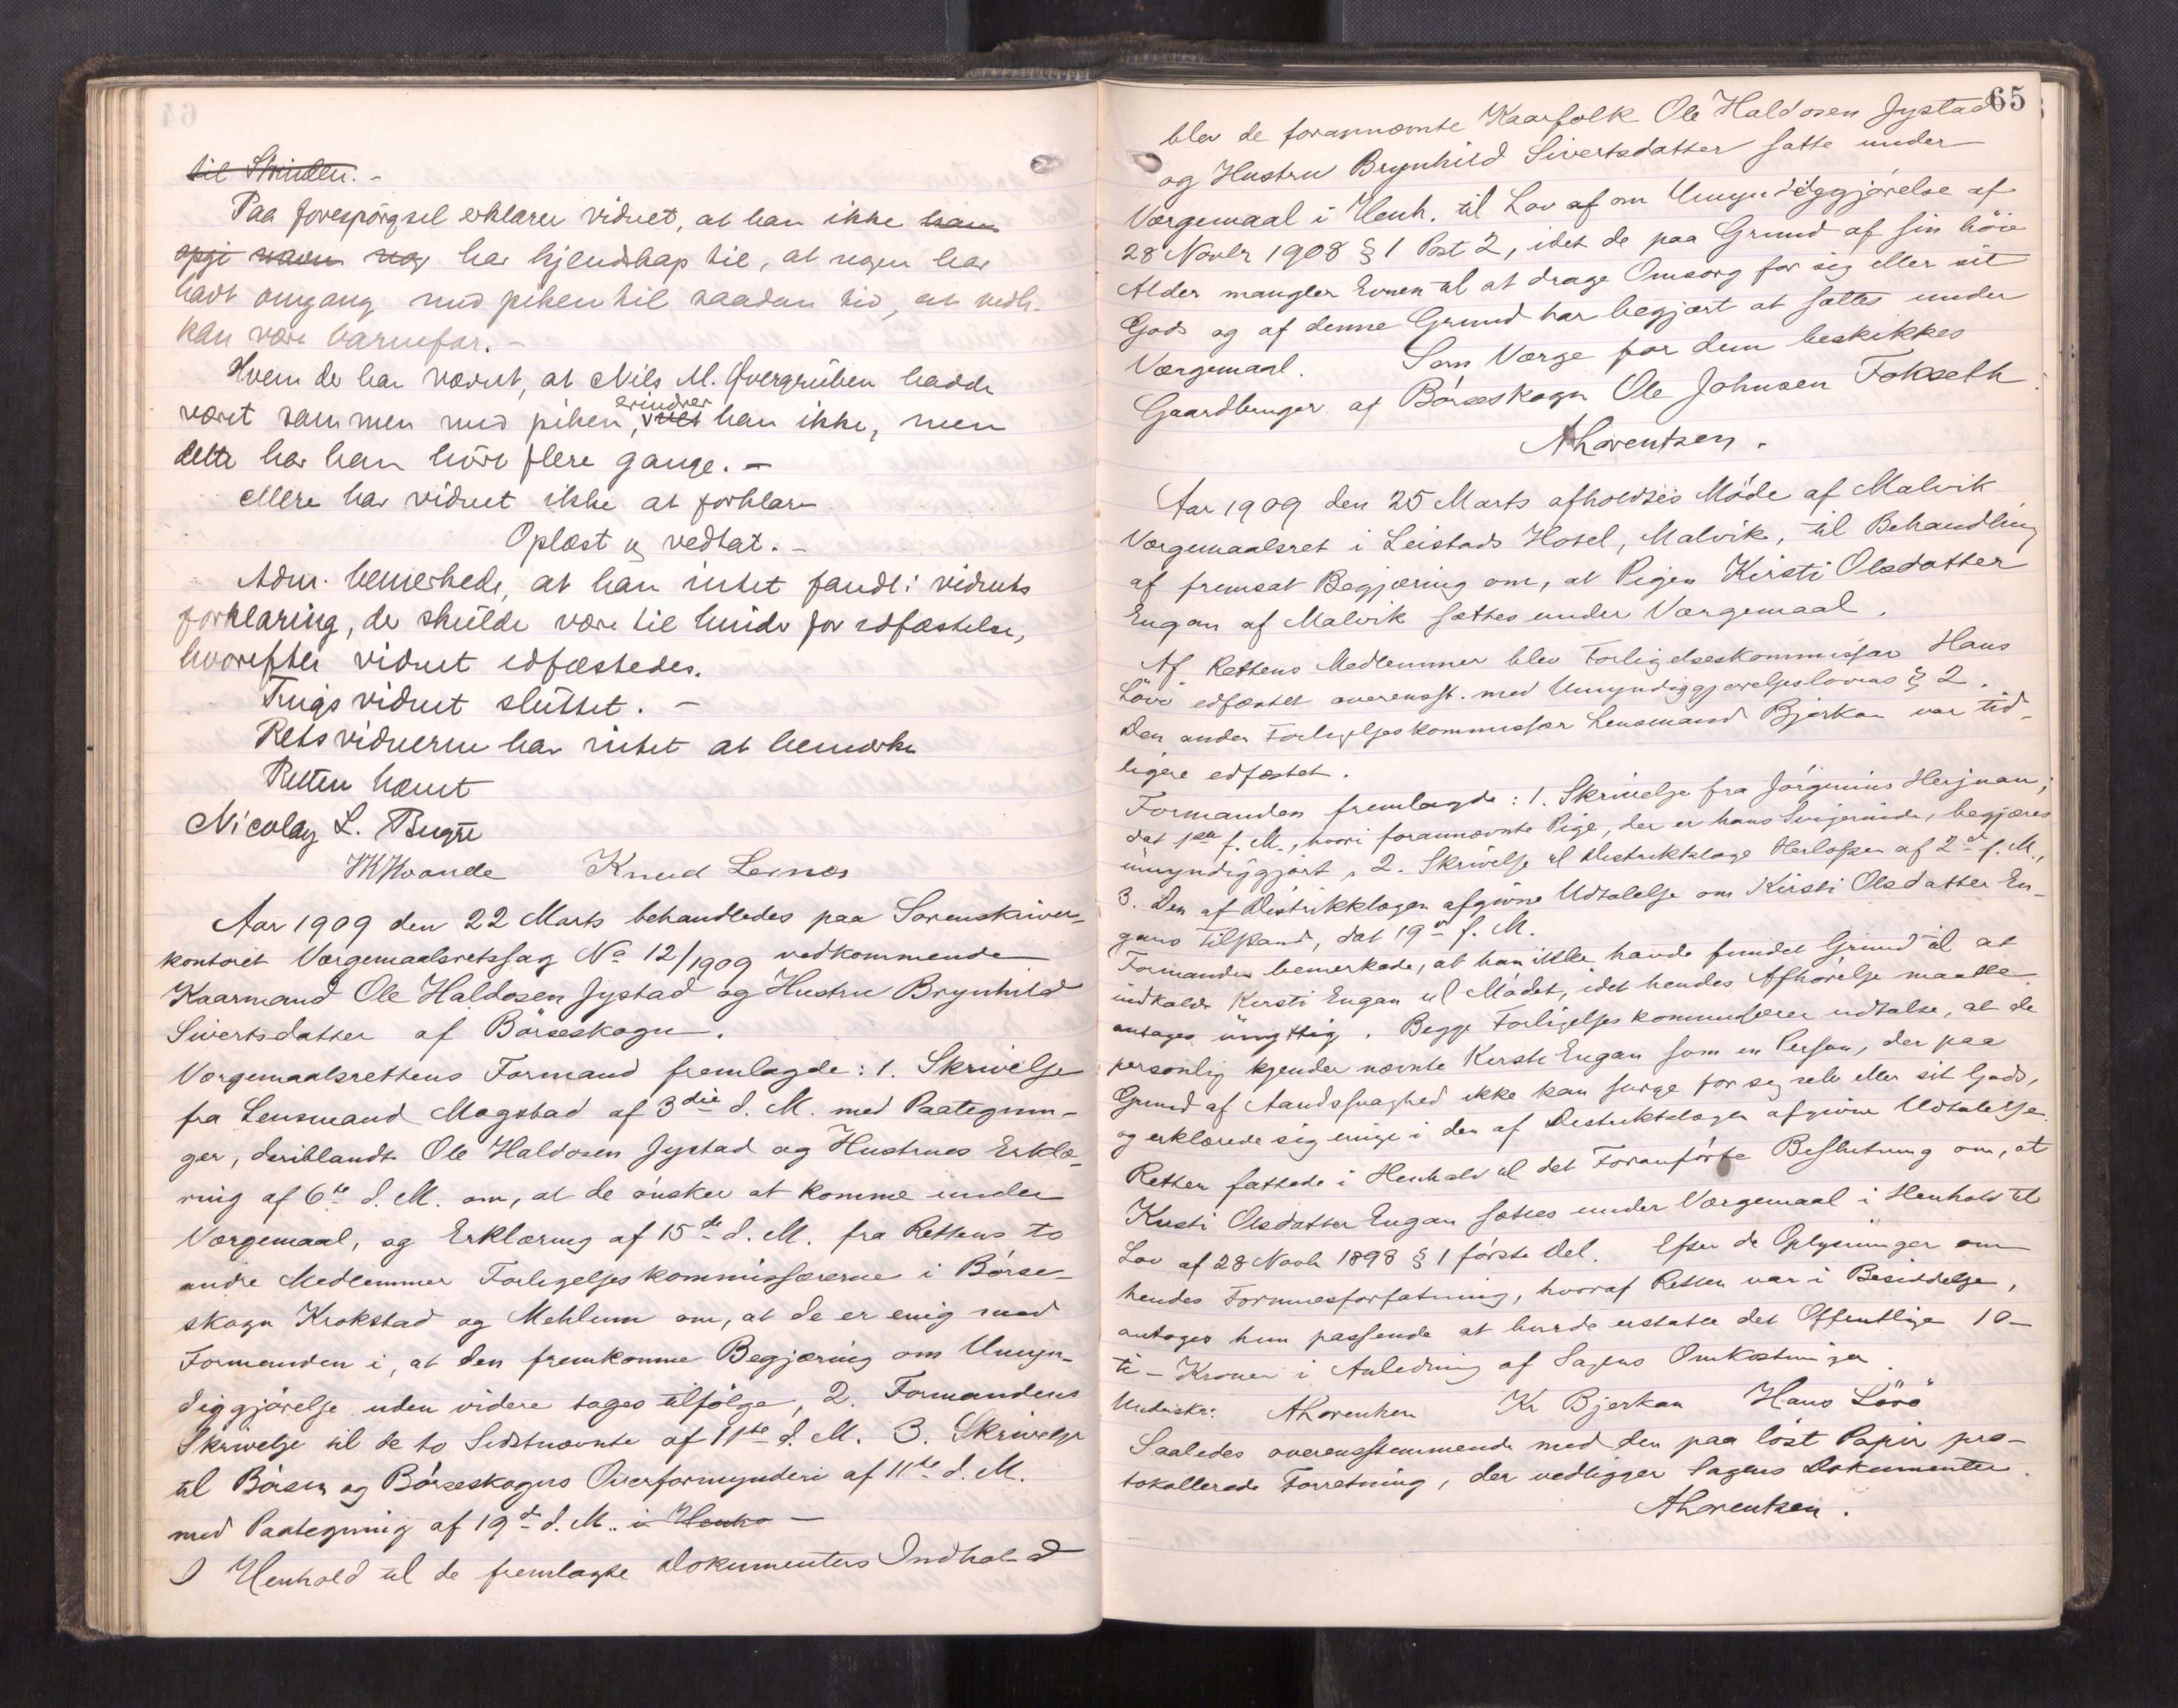 til Strinden. -
Paa forespörgsel erklærer vidnet, at han ikke han
opgi navn nog har kjendskap til, at nogen har
hadt omgang med piken til saadan tid, at vedk.
kan være barnefar. -
Hvem der har nævnt, at Nils M. Øvergruben hadde
været sammen med piken, erindrer vitet han ikke, men
dette har han hört flere gange. -
Mere har vidnet ikke at forklare
Oplæst og vedtat. -
Adm. bemerkede, at han intet fandt i vidnets
forklaring, der skulde være til hinder for edfæstelse,
hvorefter vidnet edfæstedes.
Tingsvidnet sluttet. -
Retsvidnerne har intet at bemærke
Retten hævet
Nicolay L. Bugge
Knud Leinæs
Aar 1909 den 22 Marts behandledes paa Sorenskriver-
kontoret Værgemaalsretssag No 12/1909 vedkommende
Kaarmand Ole Haldosen Jystad og Hustru Brynhild
Sivertsdatter af Börseskogn.
Værgemaalsrettens Formand fremlagde: 1. Skrivelse
fra Lensmand Magstad af 3die d. M. med Paategnin-
ger, deriblandt Ole Haldosen Jystad og Hustrues Erklæ-
ring af 6te d. M. om, at de önsker at komme under
Værgemaal, og Erklæring af 15de d. M. fra Rettens to
andre Medlemmer Forligelseskommissærerne i Börse-
skogn Krokstad og Mehlum om, at de er enig med
Formanden i, at den fremkomne Begjæring om Umyn-
diggjörelse uden videre tages tilfölge, 2. Formandens
Skrivelse til de to Sidstnævnte af 11te d. M. 3. Skrivelse
til Börsen og Börseskogns Overformynderi af 11te d. M.
med Paategning af 19de d. M. i Henho -
I Henhold til de fremlagte Dokumenters Indhold
65
blev de forannævnte Kaarfolk Ole Haldosen Jystad
og Hustru Brynhild Sivertsdatter satte under
Værgemaal i Henh. til Lov af om Umyndiggjörelse af
28 Novbr 1908 § 1 Post 2, idet de paa Grund af sin höie
Alder mangler Evnen til at drage Omsorg for sig eller sit
Gods og af denne Grund har begjært at sættes under
Værgemaal. Som Værge for dem beskikkes
Gaardbruger af Börseskogn Ole Johnsen Fokseth.
ALorentzen.
Aar 1909 den 25 Marts afholdtes Möde af Malvik
Værgemaalsret i Leistads Hotel, Malvik, til Behandling
af fremsat Begjæring om, at Pigen Kirsti Olsdatter
Engan af Malvik sættes under Værgemaal.
Af Rettens Medlemmer blev Forligelseskommissær Hans
Lövö edfæstet overensst. med Umyndiggjörelseslovens § 2.
Den anden Forligelseskommissær Lensmand Bjerkan var tid-
ligere edfæstet.
Formanden fremlagde: 1. Skrivelse fra Jörginius Herjuan,
dat 1ste f. M., hvori forannævnte Pige, der er hans Svigerinde, begjæres
umyndiggjort, 2. Skrivelse til Distriktslæge Herlofsen af 2den f. M.,
3. Den af Distriktslægen afgivne Udtalelse om Kirsti Olsdatter En-
gans Tilstand, dat 19de f. M.
Formanden bemerkede, at han ikke havde fundet Grund til at
indkalde Kirsti Engan til Mödet, idet hendes Afhörelse maatte
antages unyttig. Begge Forligelseskommissærer udtalte, at de
personlig kjender nævnte Kirsti Engan som en Person, der paa
Grund af Aandssvaghed ikke kan sørge for sig selv eller sit Gods,
og erklærede sig enige i den af Distriktslægen afgivne Udtalelse
Retten fattede i Henhold til det Foranförte Beslutning om, at
Kirsti Olsdatter Engan sættes under Værgemaal i Henhold til
Lov af 28 Novbr 1898 § 1 förste Del. Efter de Oplysninger om
hendes Formuesforfatning, hvoraf Retten var i Besiddelse,
antages hun passende at burde erstatte det Offentlige 10-
ti - Kroner i Anledning af Sagens Omkostninger.
Underskr: ALorentzen Kr Bjerkan Hans Lövö
Saaledes overensstemmende med den paa löst Papir pro-
tokollerede Forretning, der vedligger Sagens Dokumenter.
ALorentzen.